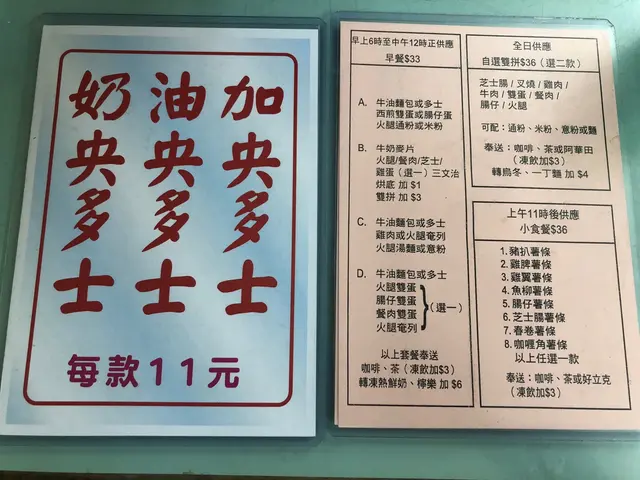 加央多士
油央多士
奶央多士
每款11元
早上6時至中午12時正供應
早餐$33
A. 牛油麵包或多士
西煎雙蛋或腸仔蛋
火腿通粉或米粉
B. 牛奶麥片
火腿/餐肉/芝士/
雞蛋（選一）三文治
烘底 加 $1
雙拼 加 $3
C. 牛油麵包或多士
雞肉或火腿奄列
火腿湯麵或意粉
D. 牛油麵包或多士
火腿雙蛋
腸仔雙蛋
餐肉雙蛋
火腿奄列
（選一）
以上套餐奉送
咖啡、茶（凍飲加$3）
轉凍熱鮮奶、檸樂 加 $6
全日供應
自選雙拼$36（選二款）
芝士腸 / 叉燒 / 雞肉 /
牛肉 / 雙蛋 / 餐肉 /
腸仔 / 火腿
可配：通粉、米粉、意粉或麵
奉送：咖啡、茶或阿華田
（凍飲加$3）
轉烏冬、一丁麵 加 $4
上午11時後供應
小食餐$36
1. 豬扒薯條
2. 雞脾薯條
3. 雞翼薯條
4. 魚柳薯條
5. 腸仔薯條
6. 芝士腸薯條
7. 春卷薯條
8. 咖喱角薯條
以上任選一款
奉送：咖啡、茶或好立克
（凍飲加$3）